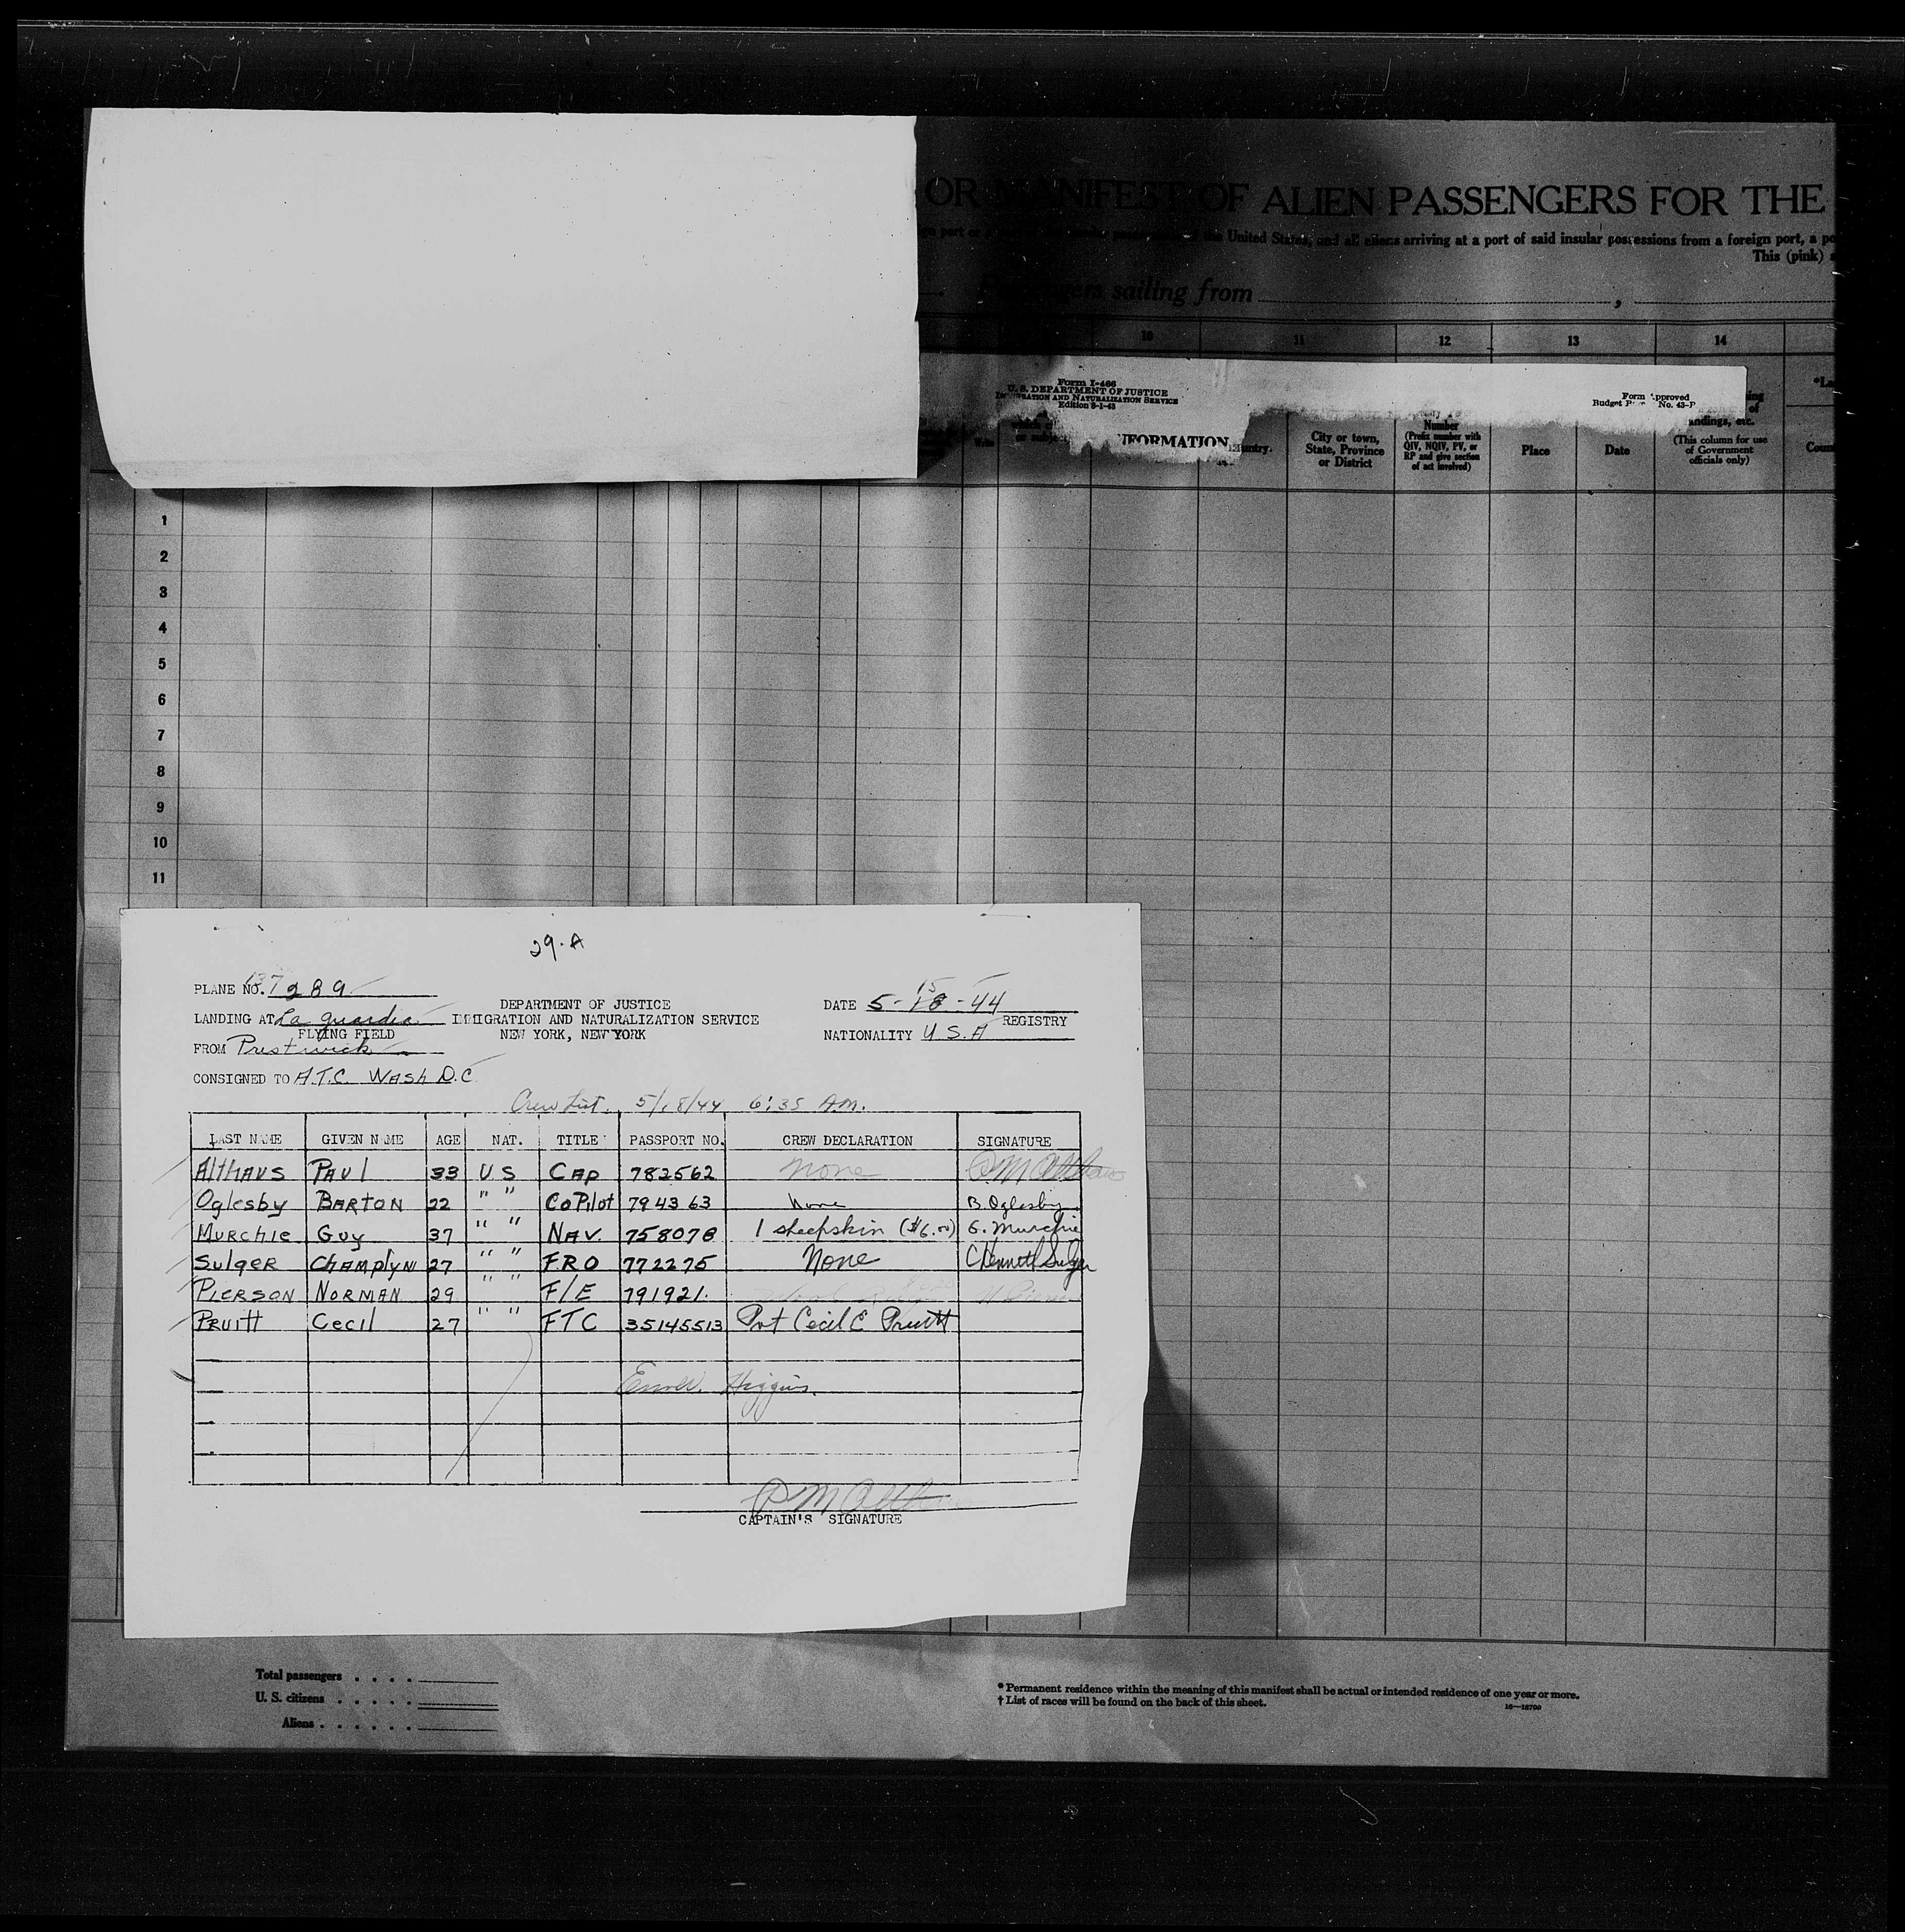 OR MANIFEST OF ALIEN PASSENGERS FOR THE
the United States, and all aliens arriving at a port of said insular possessions from a foreign port, a po
This (pink) s
Passengers sailing from
10 11 12 13 14
Form I-466
U. S. DEPARTMENT OF JUSTICE
IMMIGRATION AND NATURALIZATION SERVICE
Edition 8-1-43
Form Approved
Budget No. 43-R
INFORMATION
City or town,
State, Province
or District
Number
(Prefix number with
QIV, NQIV, PV, or
RP and give section
of act involved)
Place
Date
andings, etc.
(This column for use
of Government
officials only)
*La
Coun
1
2
3
4
5
6
7
8
9
10
11
29-A
PLANE NO. 7289
LANDING AT La guardia
FLYING FIELD
FROM Prestwick
CONSIGNED TO A.T.C. Wash D.C.
DEPARTMENT OF JUSTICE
IMMIGRATION AND NATURALIZATION SERVICE
NEW YORK, NEW YORK
DATE 5-18-44
15
REGISTRY
NATIONALITY U.S.A
Crew List. 5/18/44 6:35 A.M.
LAST NAME GIVEN NAME AGE NAT. TITLE PASSPORT NO. CREW DECLARATION SIGNATURE
Althaus Paul 33 U S Cap 782562 none P M Althaus
Oglesby Barton 22 " " CoPilot 794363 None B. Oglesby
Murchie Guy 37 " " Nav. 758078 1 sheepskin ($6.00) G. Murchie
Sulger Champlyn 27 " " FRO 772275 None
Pierson Norman 29 " " F/E 791921.
Pruitt Cecil 27 " " FTC 35145513 Pvt Cecil C Pruitt
Higgins.
P M Alth
CAPTAIN'S SIGNATURE
Total passengers . . . .
U. S. citizens . . . . .
Aliens . . . . . .
* Permanent residence within the meaning of this manifest shall be actual or intended residence of one year or more.
† List of races will be found on the back of this sheet.
16—18700